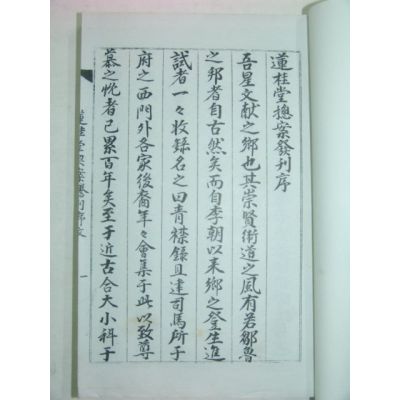 蓮桂堂揔案發刊序
吾星文献之鄉也其崇賢衛道之風有若鄒魯
之邦者自古然矣而自李朝以来鄉之登生進
試者一々收録名之曰青襟録且建司馬所于
府之西門外各家後裔年々會集于此以致尊
慕之忱者已累百年矣至于近古合大小科于
蓮桂堂揔案發刊序文
一